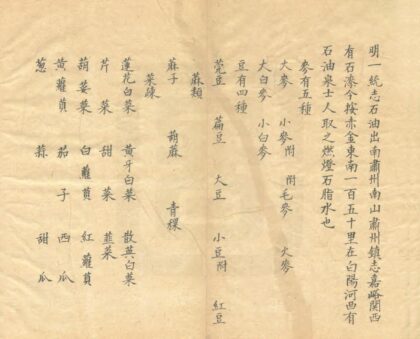 明一統志石油出南肅州南山肅州鎮志嘉峪關西
有石漆今按赤金東南一百五十里在白陽河西有
石油泉土人取之燃燈石脂水也
麥有五種
大麥 小麥附 附毛麥 火麥
大白麥 小白麥
豆有四種
莞豆 萹豆 大豆 小豆附 紅豆
蔴類
蔴子 葫蔴 青稞
菜疎
蓮花白菜 黃牙白菜 散葉白菜
芹菜 甜菜 韮菜
葫荽菜 白蘿蔔 紅蘿蔔
黃蘿蔔 茄子 西瓜
葱 蒜 甜瓜